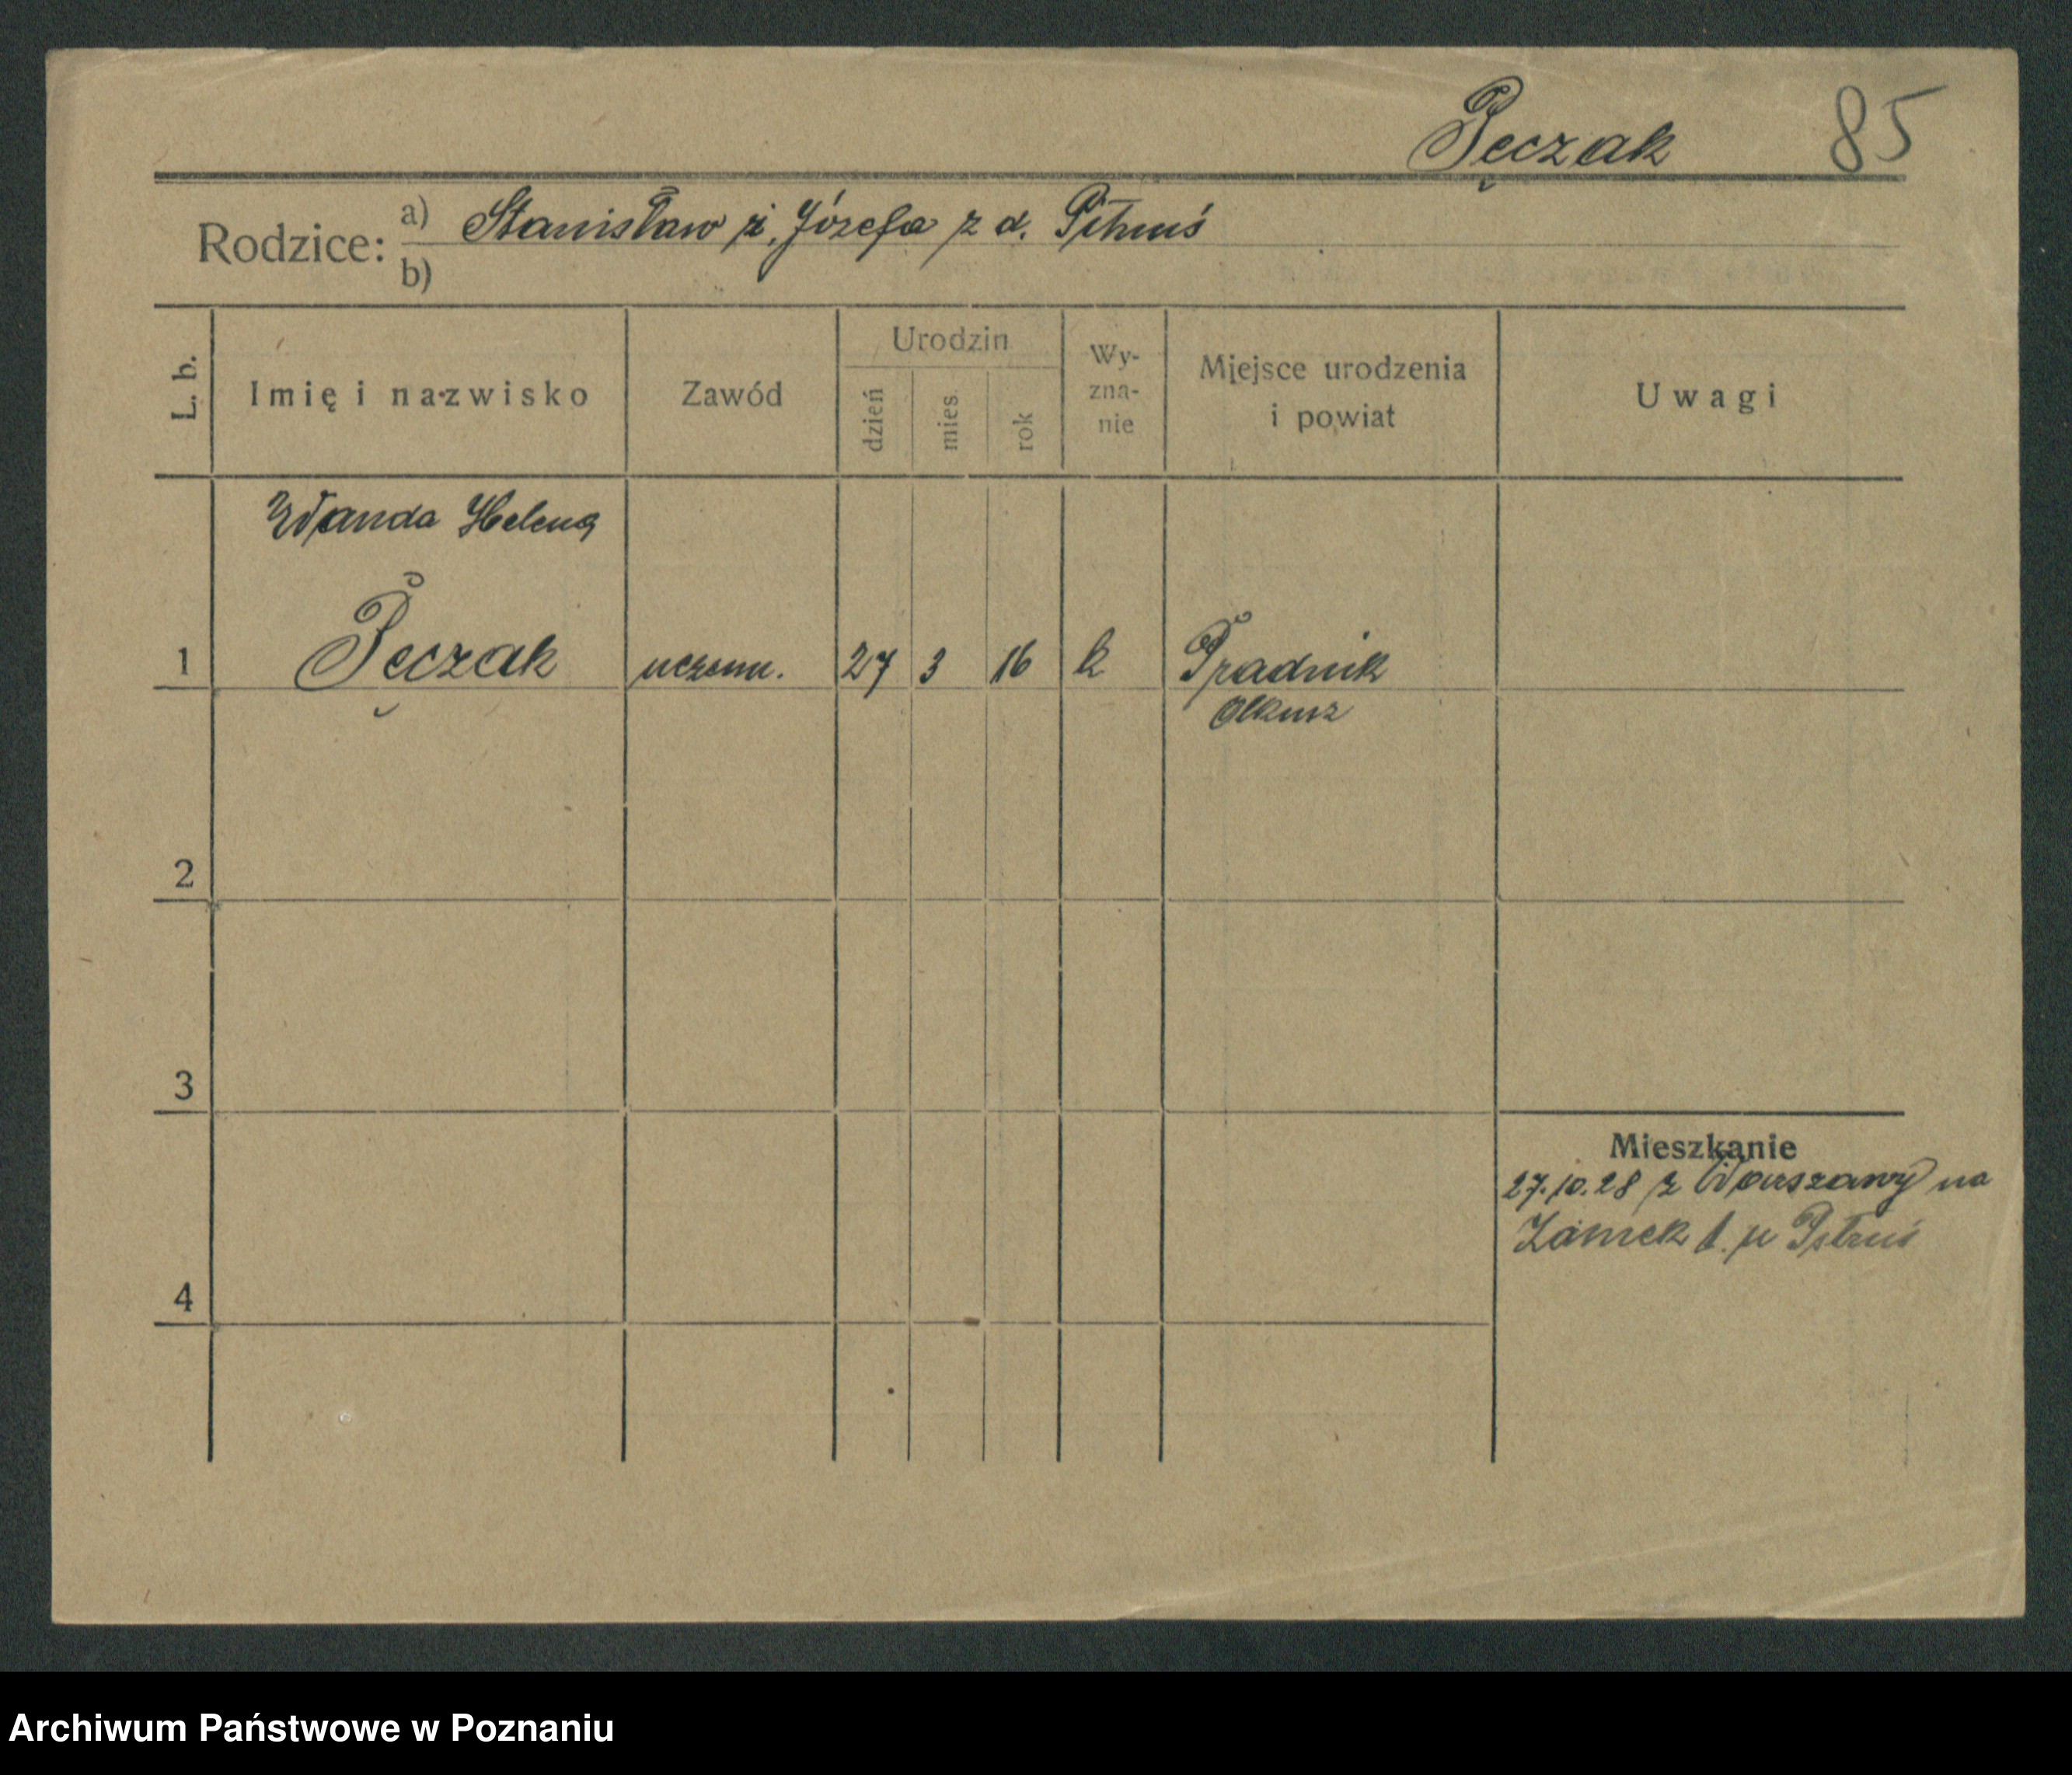 Pęczak 85
Rodzice: a) Stanisław i Józefa z d. Pitruś
b)
L. b. Imię i nazwisko Zawód Urodzin dzień mies. rok Wy-zna-nie Miejsce urodzenia i powiat Uwagi
Wanda Helena
1 Pęczak uczenn. 27 3 16 k Pradnik
Olkusz
2
3
Mieszkanie
27.10.28 z Warszawy na
Zamek p Pitruś
4
Archiwum Państwowe w Poznaniu